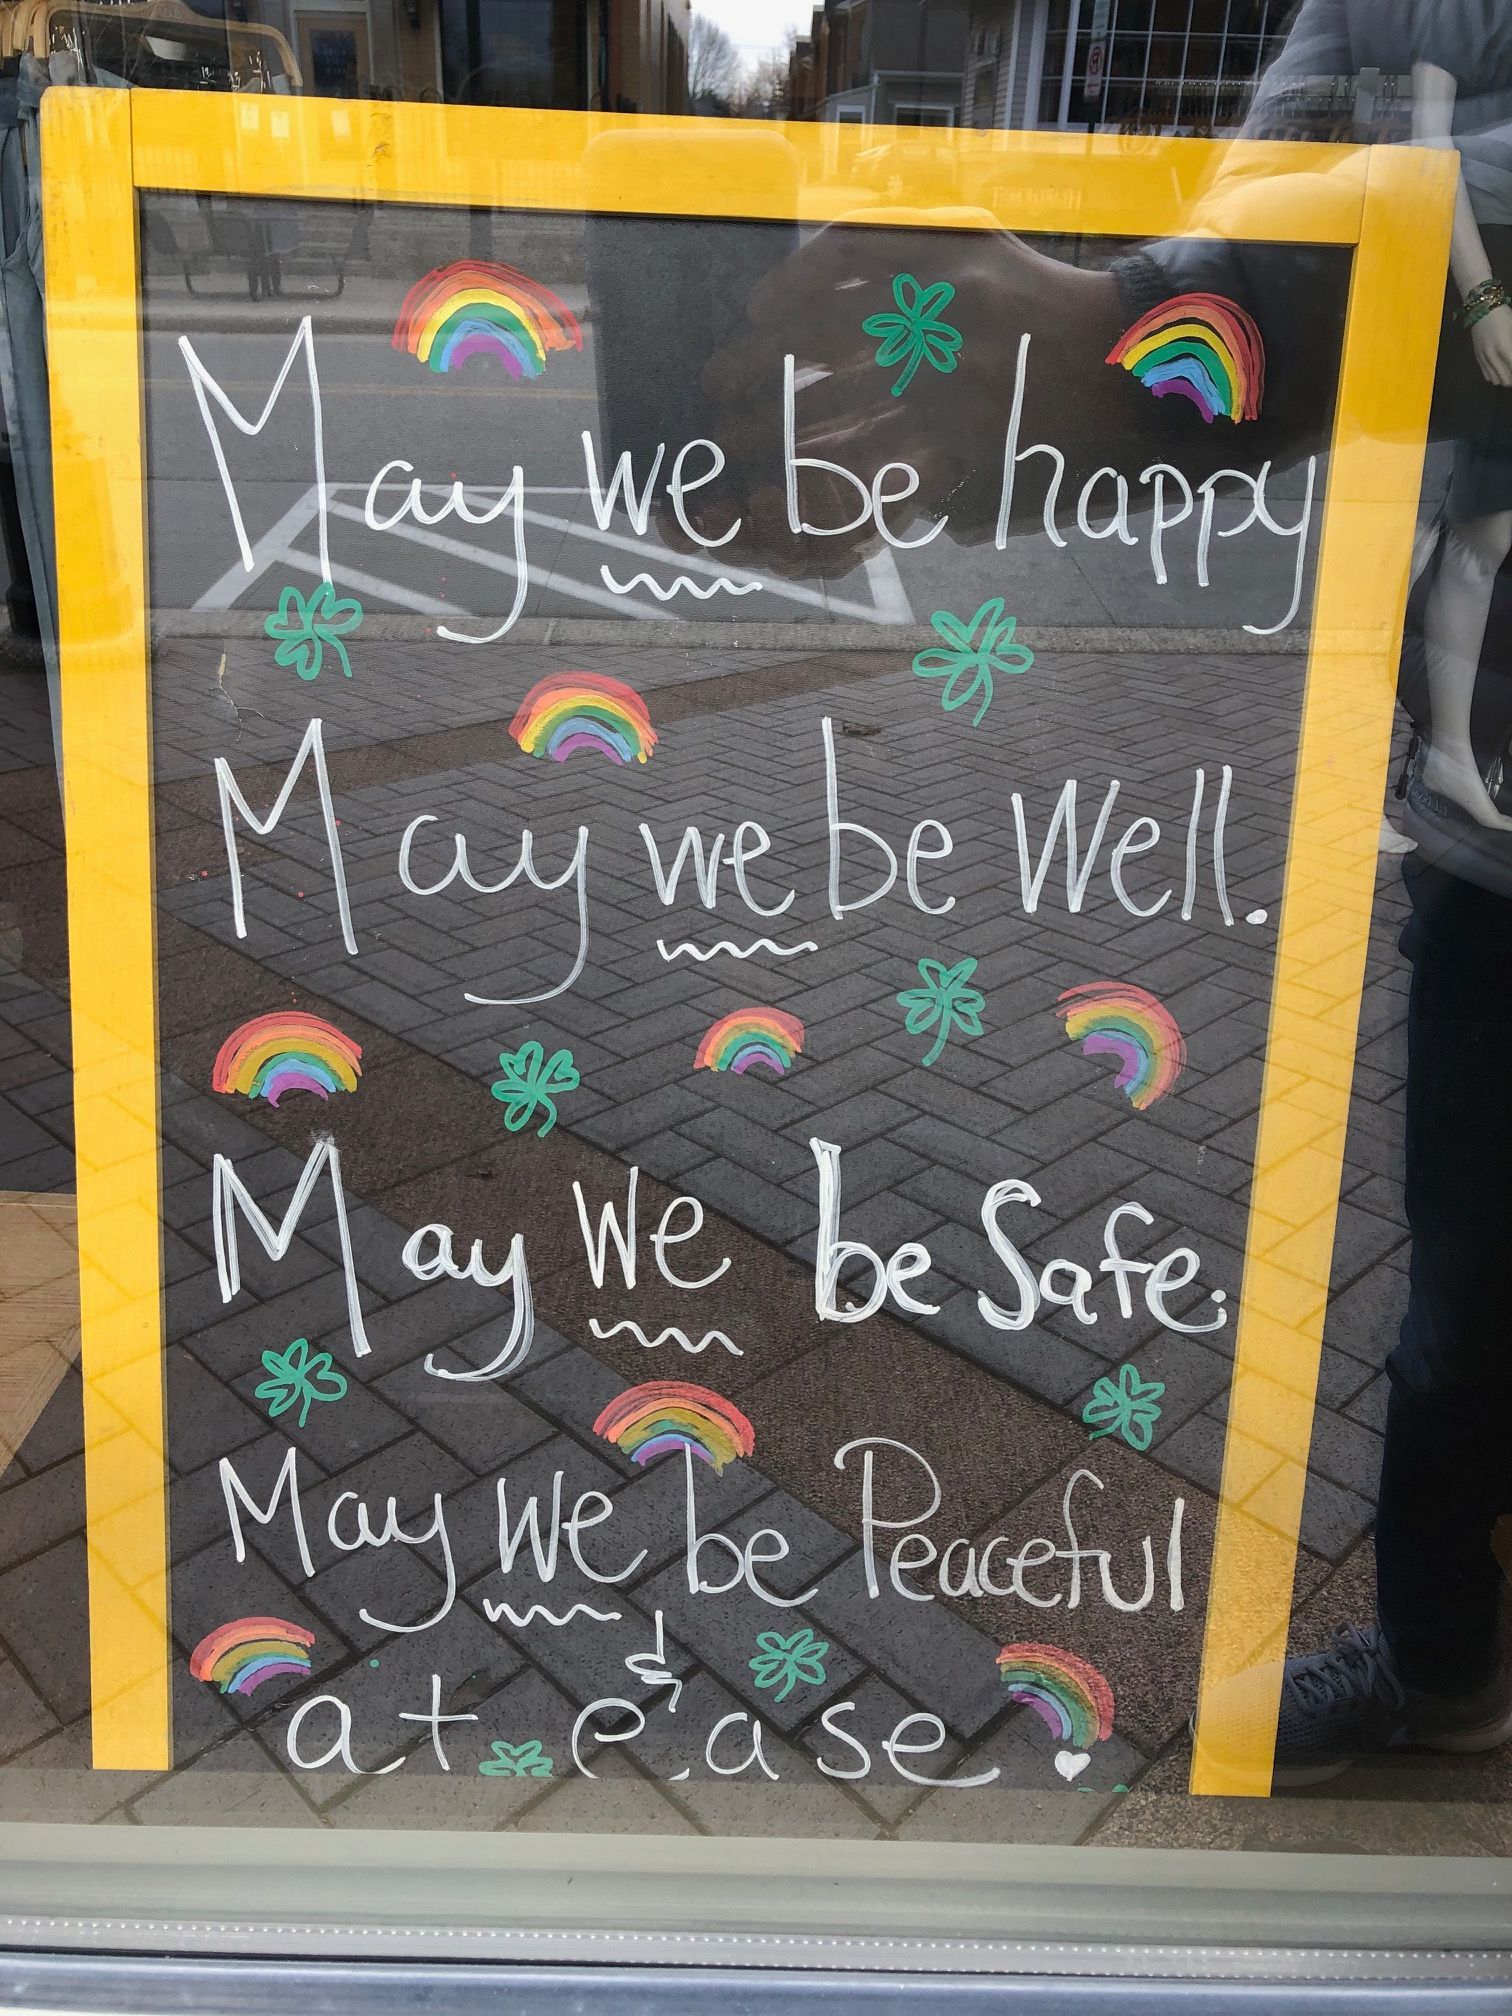 May we be happy
May we be Well.
May We be Safe.
May We be Peaceful
& at ease.